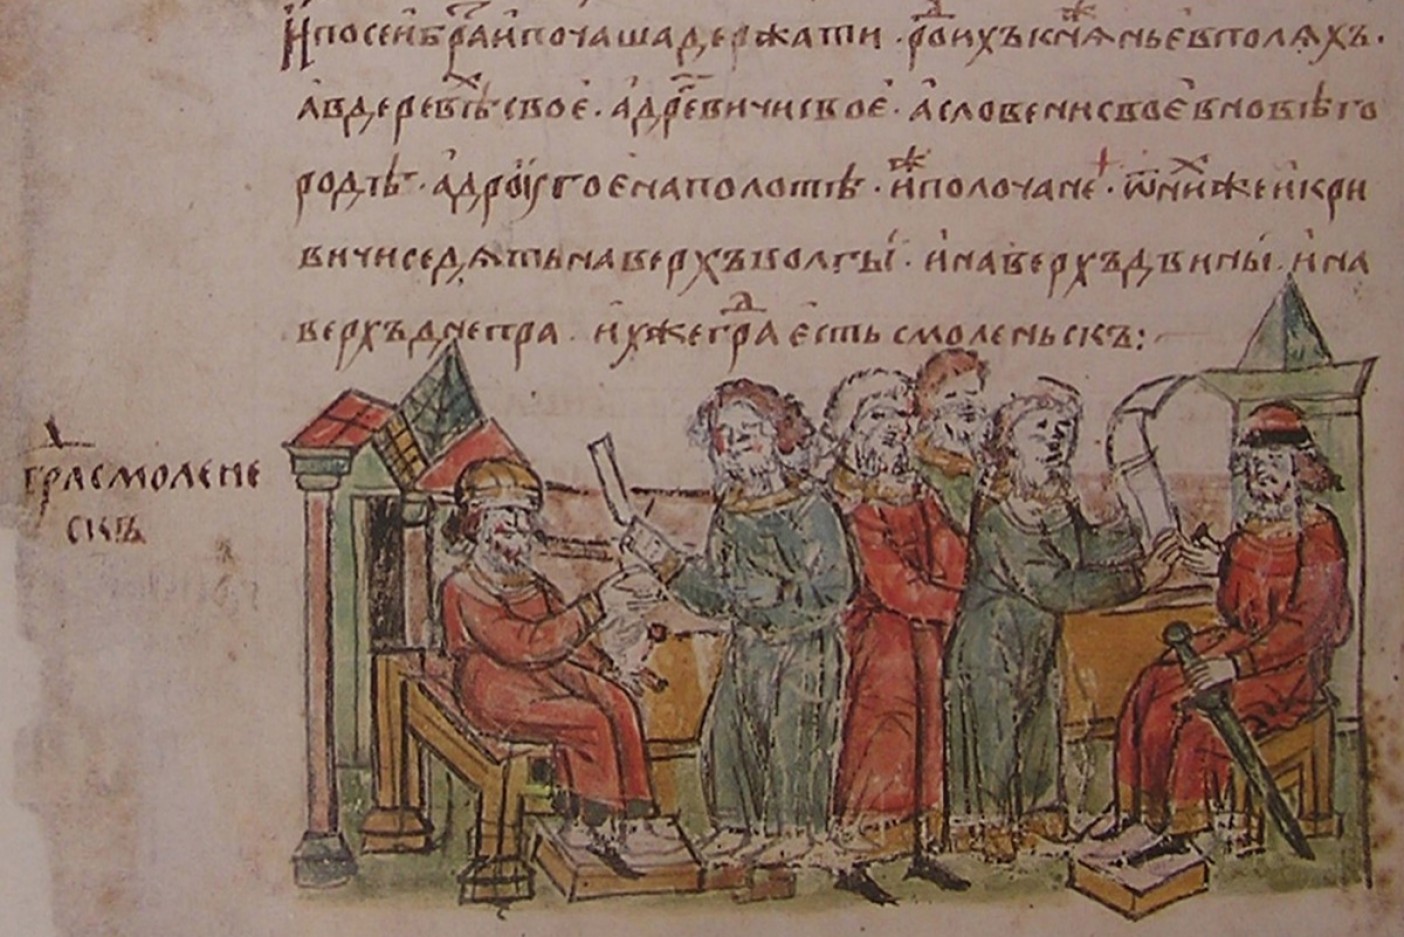 И по сеи бра҃и почаша держати · роⷣ ихъ кнѧⷤнье в полѧхъ ·
а в деревⷯѣ свое · а дре҃вичи свое · а словени свое в новѣго
родѣ · а дроугое на полотѣ · иⷤ полочане · ѿ ниⷯже и кри
вичи седѧть на верхъ волгы · и на верхъ двины · и на
верхъ днепра · ихже граⷣ есть смоленьскъ:
граⷣ смолене
скъ